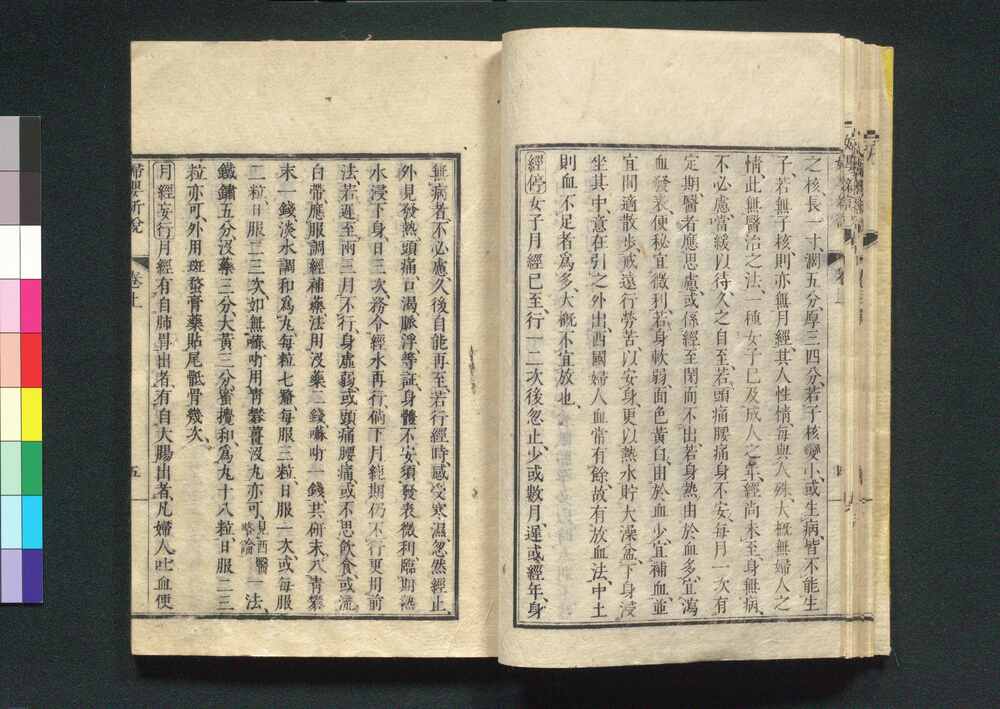 之核長一寸濶五分厚三四分若子核變小或生病皆不能生
子若無子核則亦無月經其人性情每與人殊大槪無婦人之
情此無醫治之法一種女子已及成人之年經尚未至身無病
不必慮當緩以待久之自至若頭痛腰痛身不安每月一次有
定期醫者應思慮或係經至閉而不出若身熱由於血多宜瀉
血發表便秘宜微利若身軟弱面色黃白由於血少宜補血並
宜間適散步戒遠行勞苦以安身更以熱水貯大澡盆下身浸
坐其中意在引之外出西國婦人血常有餘故有放血法中土
則血不足者爲多大槪不宜放也
經停女子月經已至行一二次後忽止少或數月遲或經年身
無病者不必慮久後自能再至若行經時感受寒濕忽然經止
外見發熱頭痛口渴脈浮等証身體不安須發表微利臨期熱
水浸下身日三次務令經水再行倘下月經期仍不行更用前
法若遲至兩三月不行身虛弱或頭痛腰痛或不思飲食或流
白帶應服調經補藥法用沒藥二錢嚇叻一錢共研末入靑礬
末一錢淡水調和爲丸每粒七釐每服三粒日服一次或每服
二粒日服二三次如無嚇叻用靑礬薑沒丸亦可見西醫略論一法
鐵鏽五分沒藥三分大黃三分蜜攪和爲丸十八粒日服二三
粒亦可外用斑蝥膏藥貼尾骶骨幾次
月經妄行月經有自肺胃出者有自大腸出者凡婦人吐血便
婦嬰新說 卷上 五